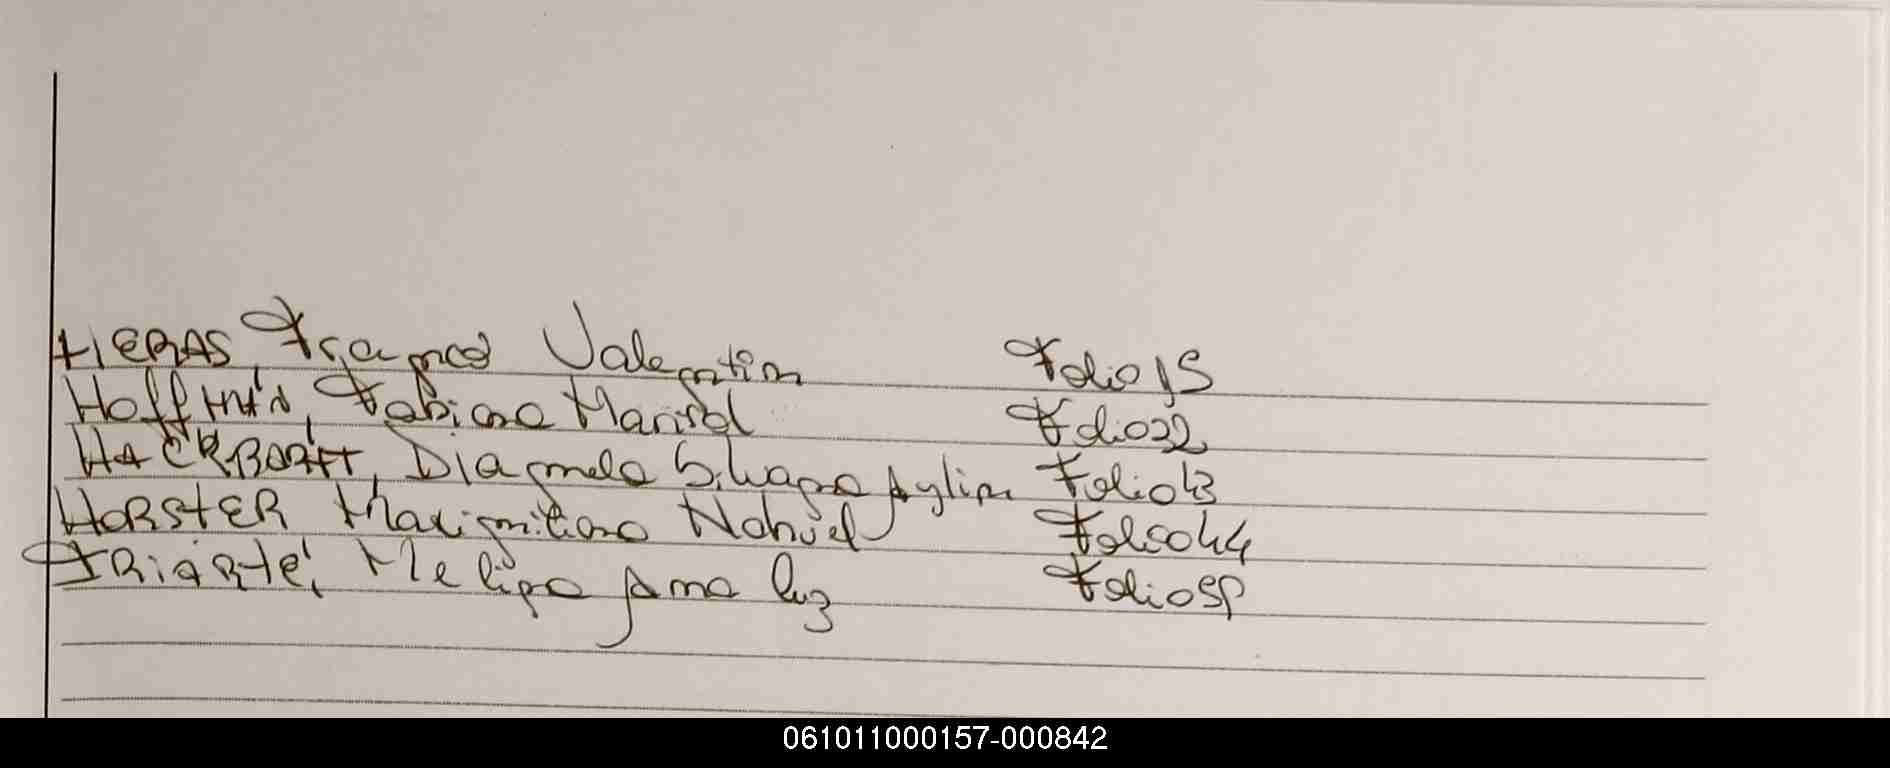 HERAS, Franco Valentin Folio 15
Hoffman, Fabiana Marisol Folio 22
HACKBARTT, Diamela Silvana Aylin Folio 43
HORSTER Maximiliano Nahuel Folio 44
IRiARte, Melina Ana luz Folio
061011000157-000842